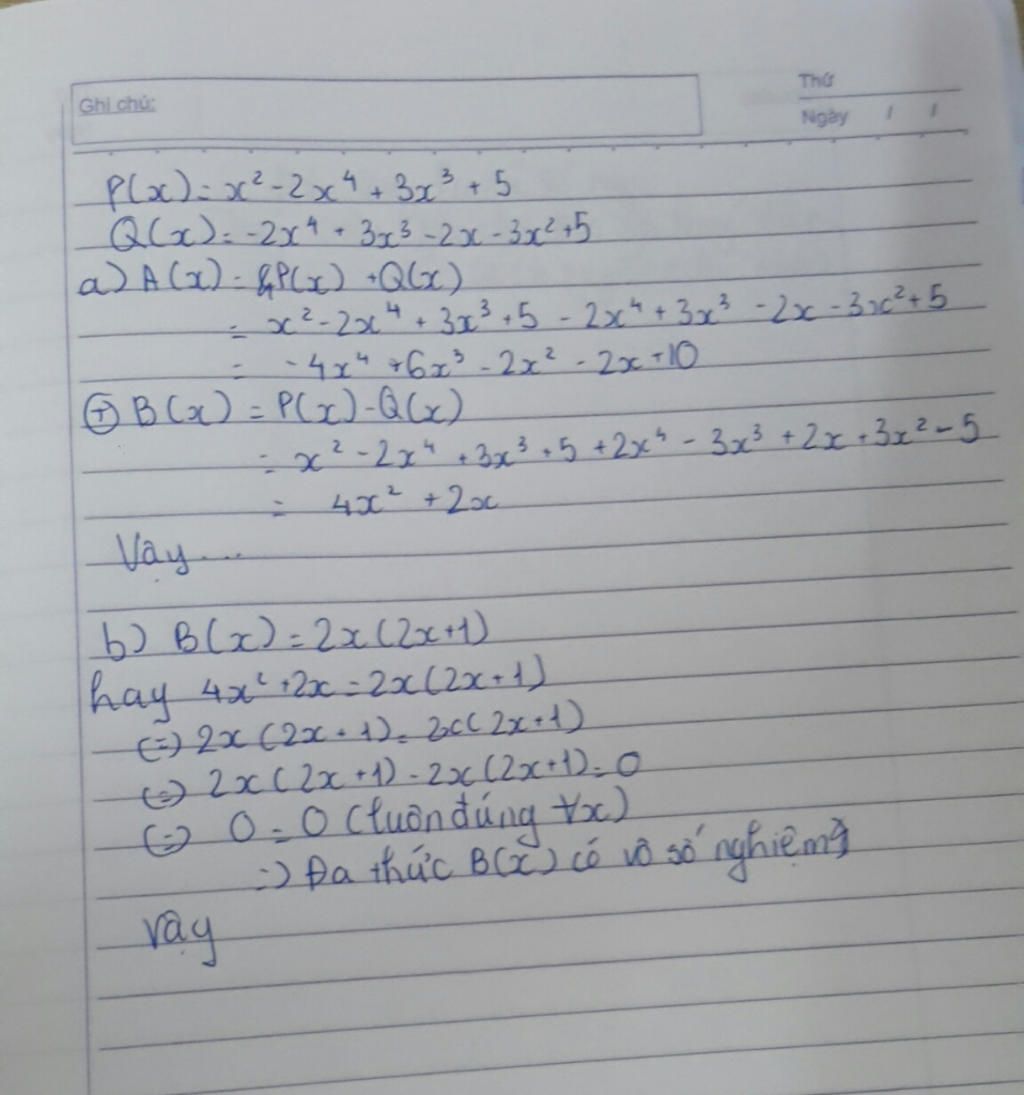 Ghi chú:
Thứ
Ngày / /
P(x) = x² - 2x⁴ + 3x³ + 5
Q(x) = -2x⁴ + 3x³ - 2x - 3x² + 5
a) A(x) = P(x) + Q(x)
= x² - 2x⁴ + 3x³ + 5 - 2x⁴ + 3x³ - 2x - 3x² + 5
= -4x⁴ + 6x³ - 2x² - 2x + 10
⊕ B(x) = P(x) - Q(x)
= x² - 2x⁴ + 3x³ + 5 + 2x⁴ - 3x³ + 2x + 3x² - 5
= 4x² + 2x
Vậy ...
b) B(x) = 2x(2x+1)
hay 4x² + 2x = 2x(2x+1)
(=) 2x(2x+1) = 2x(2x+1)
(=) 2x(2x+1) - 2x(2x+1) = 0
(=) 0 = 0 (luôn đúng ∀x)
=) Đa thức B(x) có vô số nghiệm
vậy